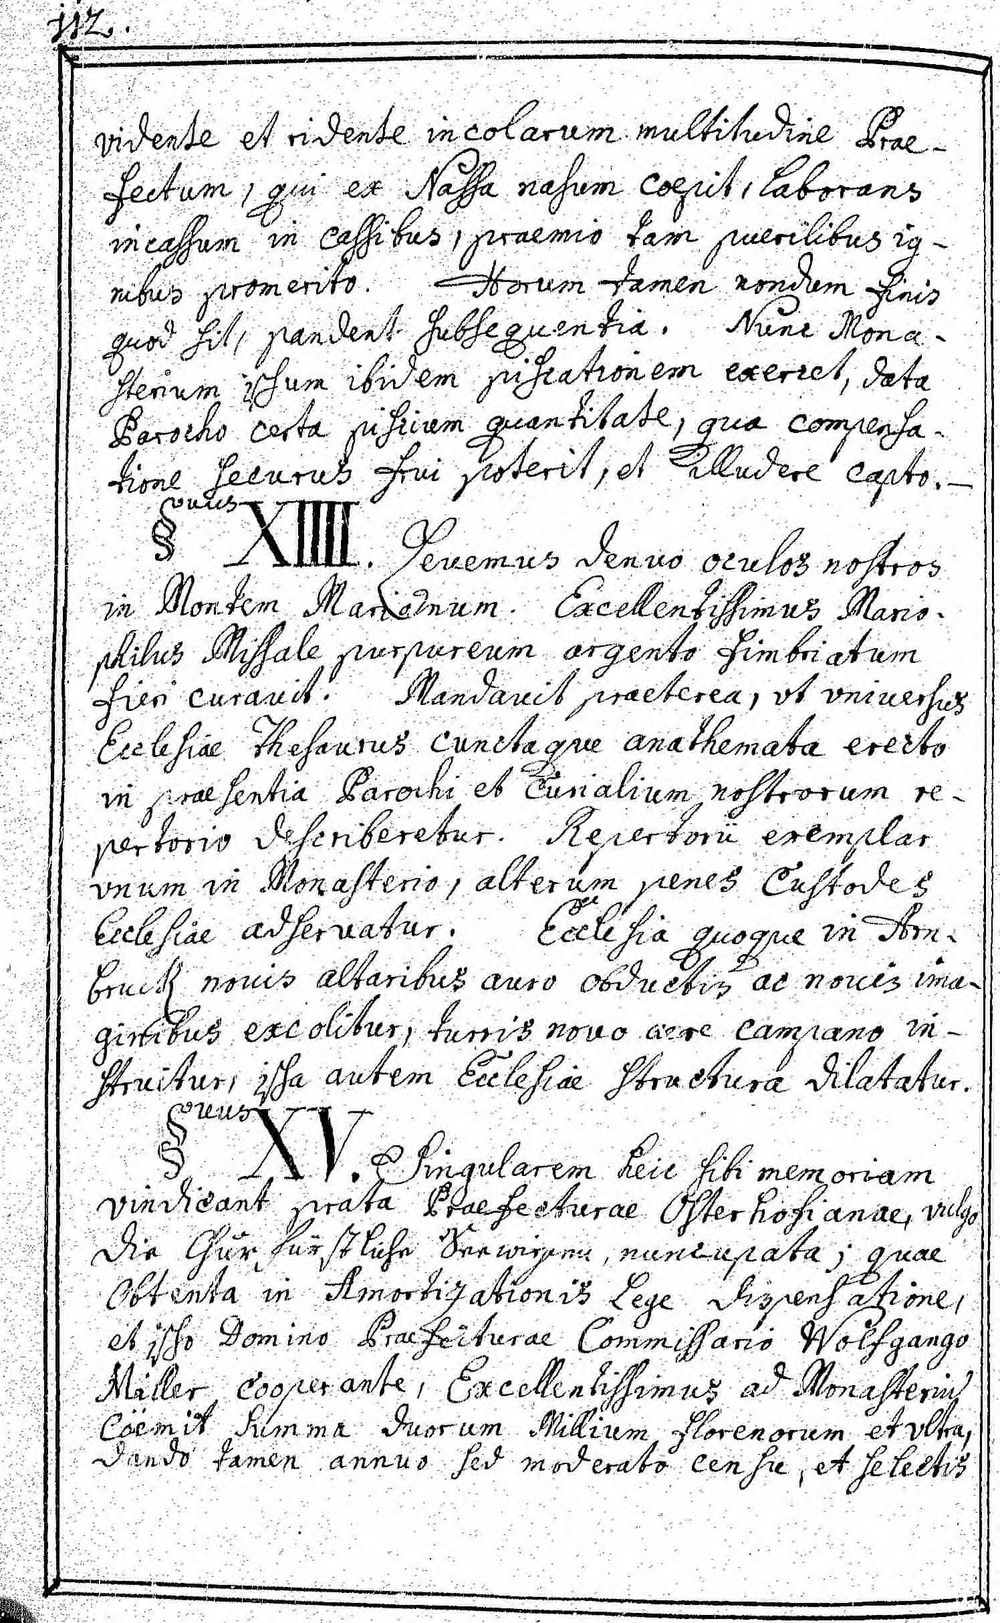 112.
vidente et ridente incolarum multitudine Prae-
fectum, qui ex Nassa nasum coepit, laborans
incassum in cassibus, praemio tam puerilibus ig-
nibus promerito. Horum tamen nondum finis
quod sit, pandent subsequentia. Nunc Mona-
sterium ipsum ibidem piscationem exercet, data
Parocho certa piscium quantitate, qua compensa-
tione securus frui poterit, et illudere capto.—
§phus XIIII. Levemus denuo oculos nostros
in Montem Marianum. Excellentissimus Mario-
philus Missale purpureum argento fimbriatum
fieri curavit. Mandavit praeterea, vt vniversus
Ecclesiae Thesaurus cunctaque anathemata erecto
in praesentia Parochi et Curialium nostrorum re-
pertorio describeretur. Repertorii exemplar
vnum in Monasterio, alterum penes Custodes
Ecclesiae adservatur. Ecclesia quoque in Arn-
bruck novis altaribus auro obductis ac novis ima-
ginibus excolitur, turris novo aere campano in-
struitur, ipsa autem Ecclesiae structura dilatatur.
§phus XV. Singularem heic sibi memoriam
vindicant prata Praefecturae Osterhofianae, vulgo
die Chur fürstliche Seewisen, nuncupata; quae
obtenta in Amortizationis Lege dispensatione,
et ipso Domino Praefecturae Commissario Wolfgango
Miller cooperante, Excellentissimus ad Monasteriū
coëmit summa duorum Millium florenorum et vltra,
dando tamen annuo sed moderato censu, et selectis